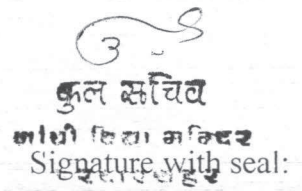 कुल सचिव
गांधी विद्या मन्दिर
Signature with seal: